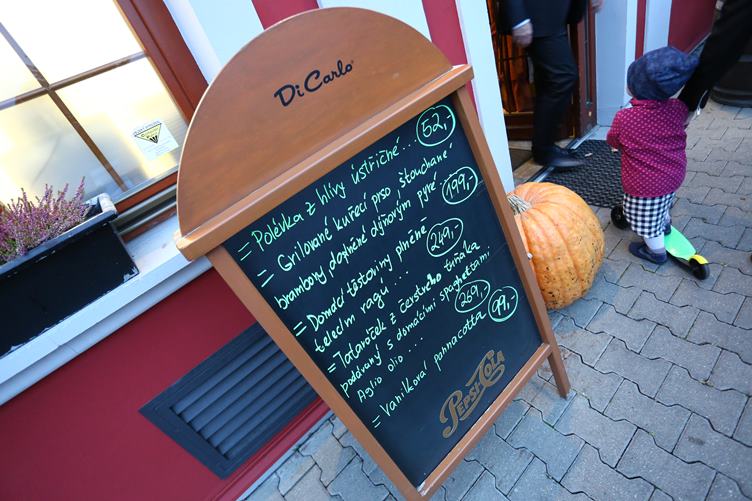 Di Carlo
= Polévka z hlívy ústřičné... 52,-
= Grilované kuřecí prso, šťouchané
brambory, doplněné dýňovým pyré 199,-
= Domácí těstoviny plněné
telecím ragú... 249,-
= Tataráček z čerstvého tuňáka
podávaný s domácími spaghetami,
Aglio olio... 269,-
= Vanilková pannacotta 99,-
PEPSI COLA